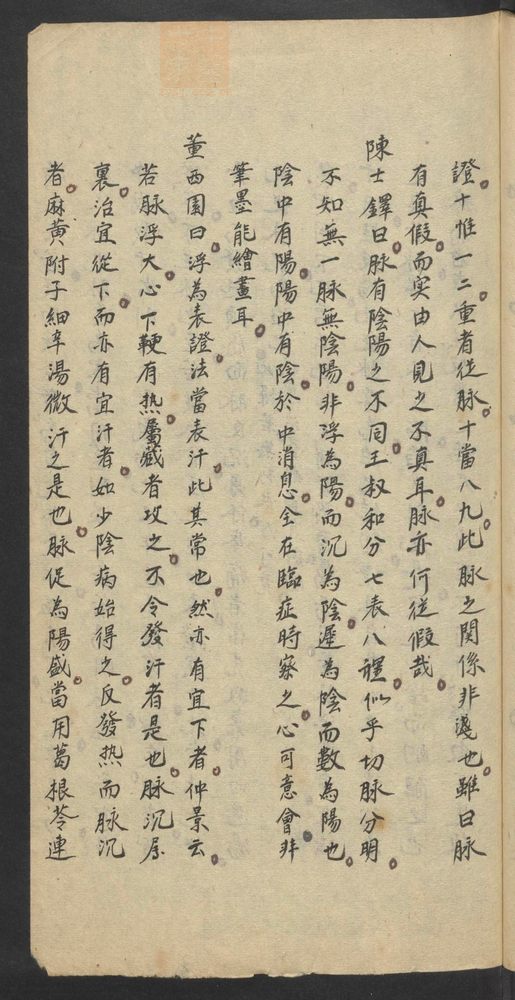 證十惟一二重者從脉十當八九此脉之関係非淺也雖曰脉
有真假而实由人見之不真耳脉亦何從假哉
陳士鐸曰脉有陰陽之不同王叔和分七表八裡似乎切脉分明
不知無一脉無陰陽非浮為陽而沉為陰遲為陰而數為陽也
陰中有陽陽中有陰於中消息全在臨症時察之心可意會非
筆墨能繪畫耳
董西園曰浮為表證法當表汗此其常也然亦有宜下者仲景云
若脉浮大心下鞕有热屬藏者攻之不令發汗者是也脉沉属
裏治宜從下而亦有宜汗者如少陰病始得之反發热而脉沉
者麻黄附子細辛湯微汗之是也脉促為陽盛當用葛根芩連